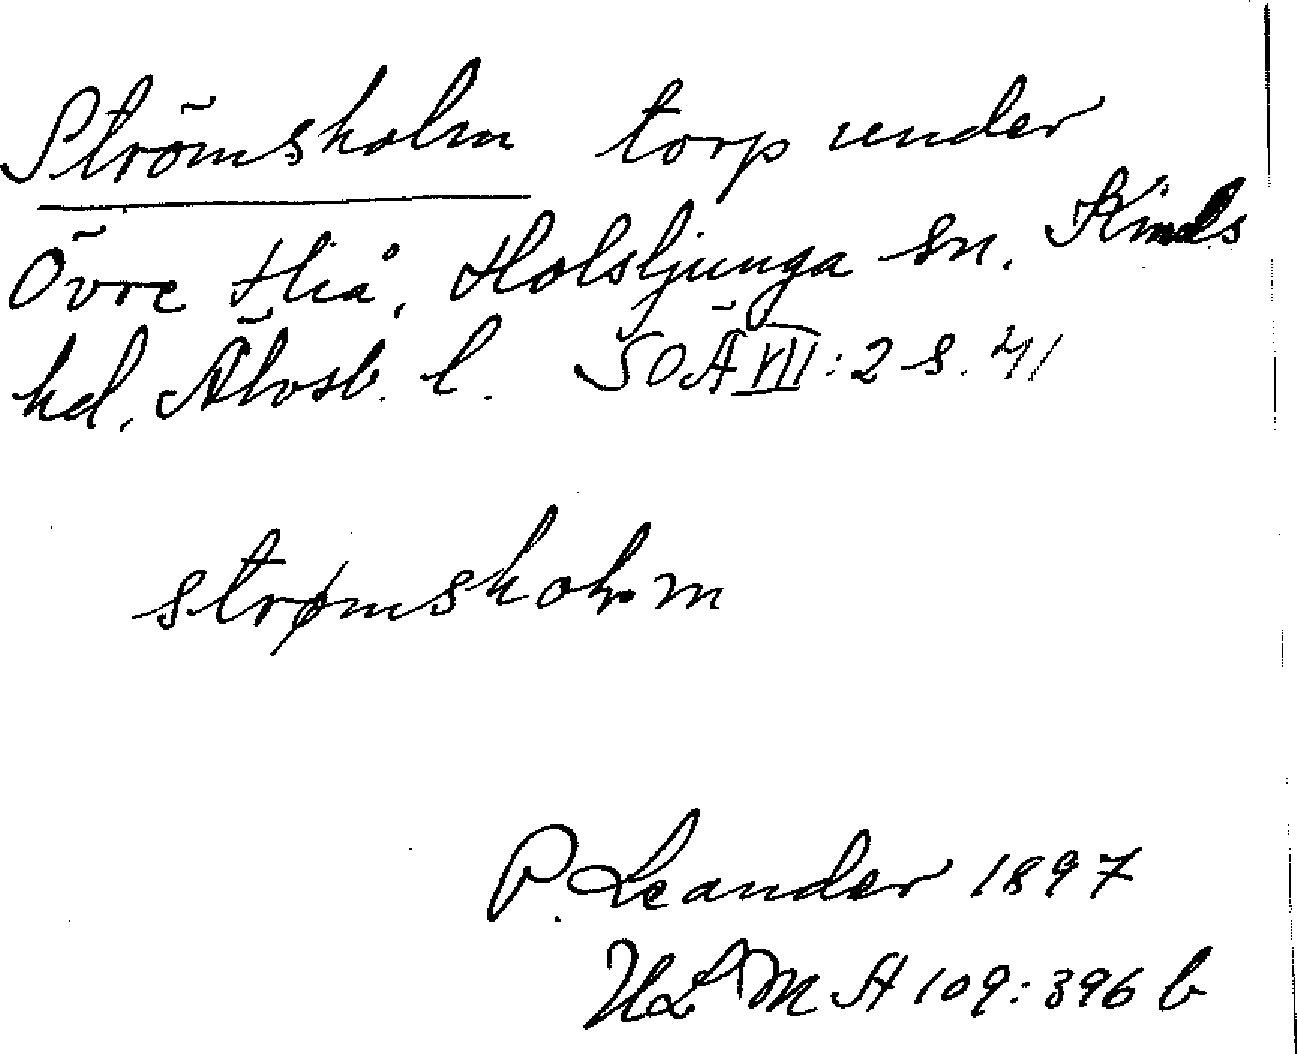 Strömsholm torp under
Övre Hiå, Holsljunga sn, Kinds
hd, Älvsb. l. SOÄ VII:2 s. 41
strømsholm
P. Leander 1897
ULMA 109:396 b